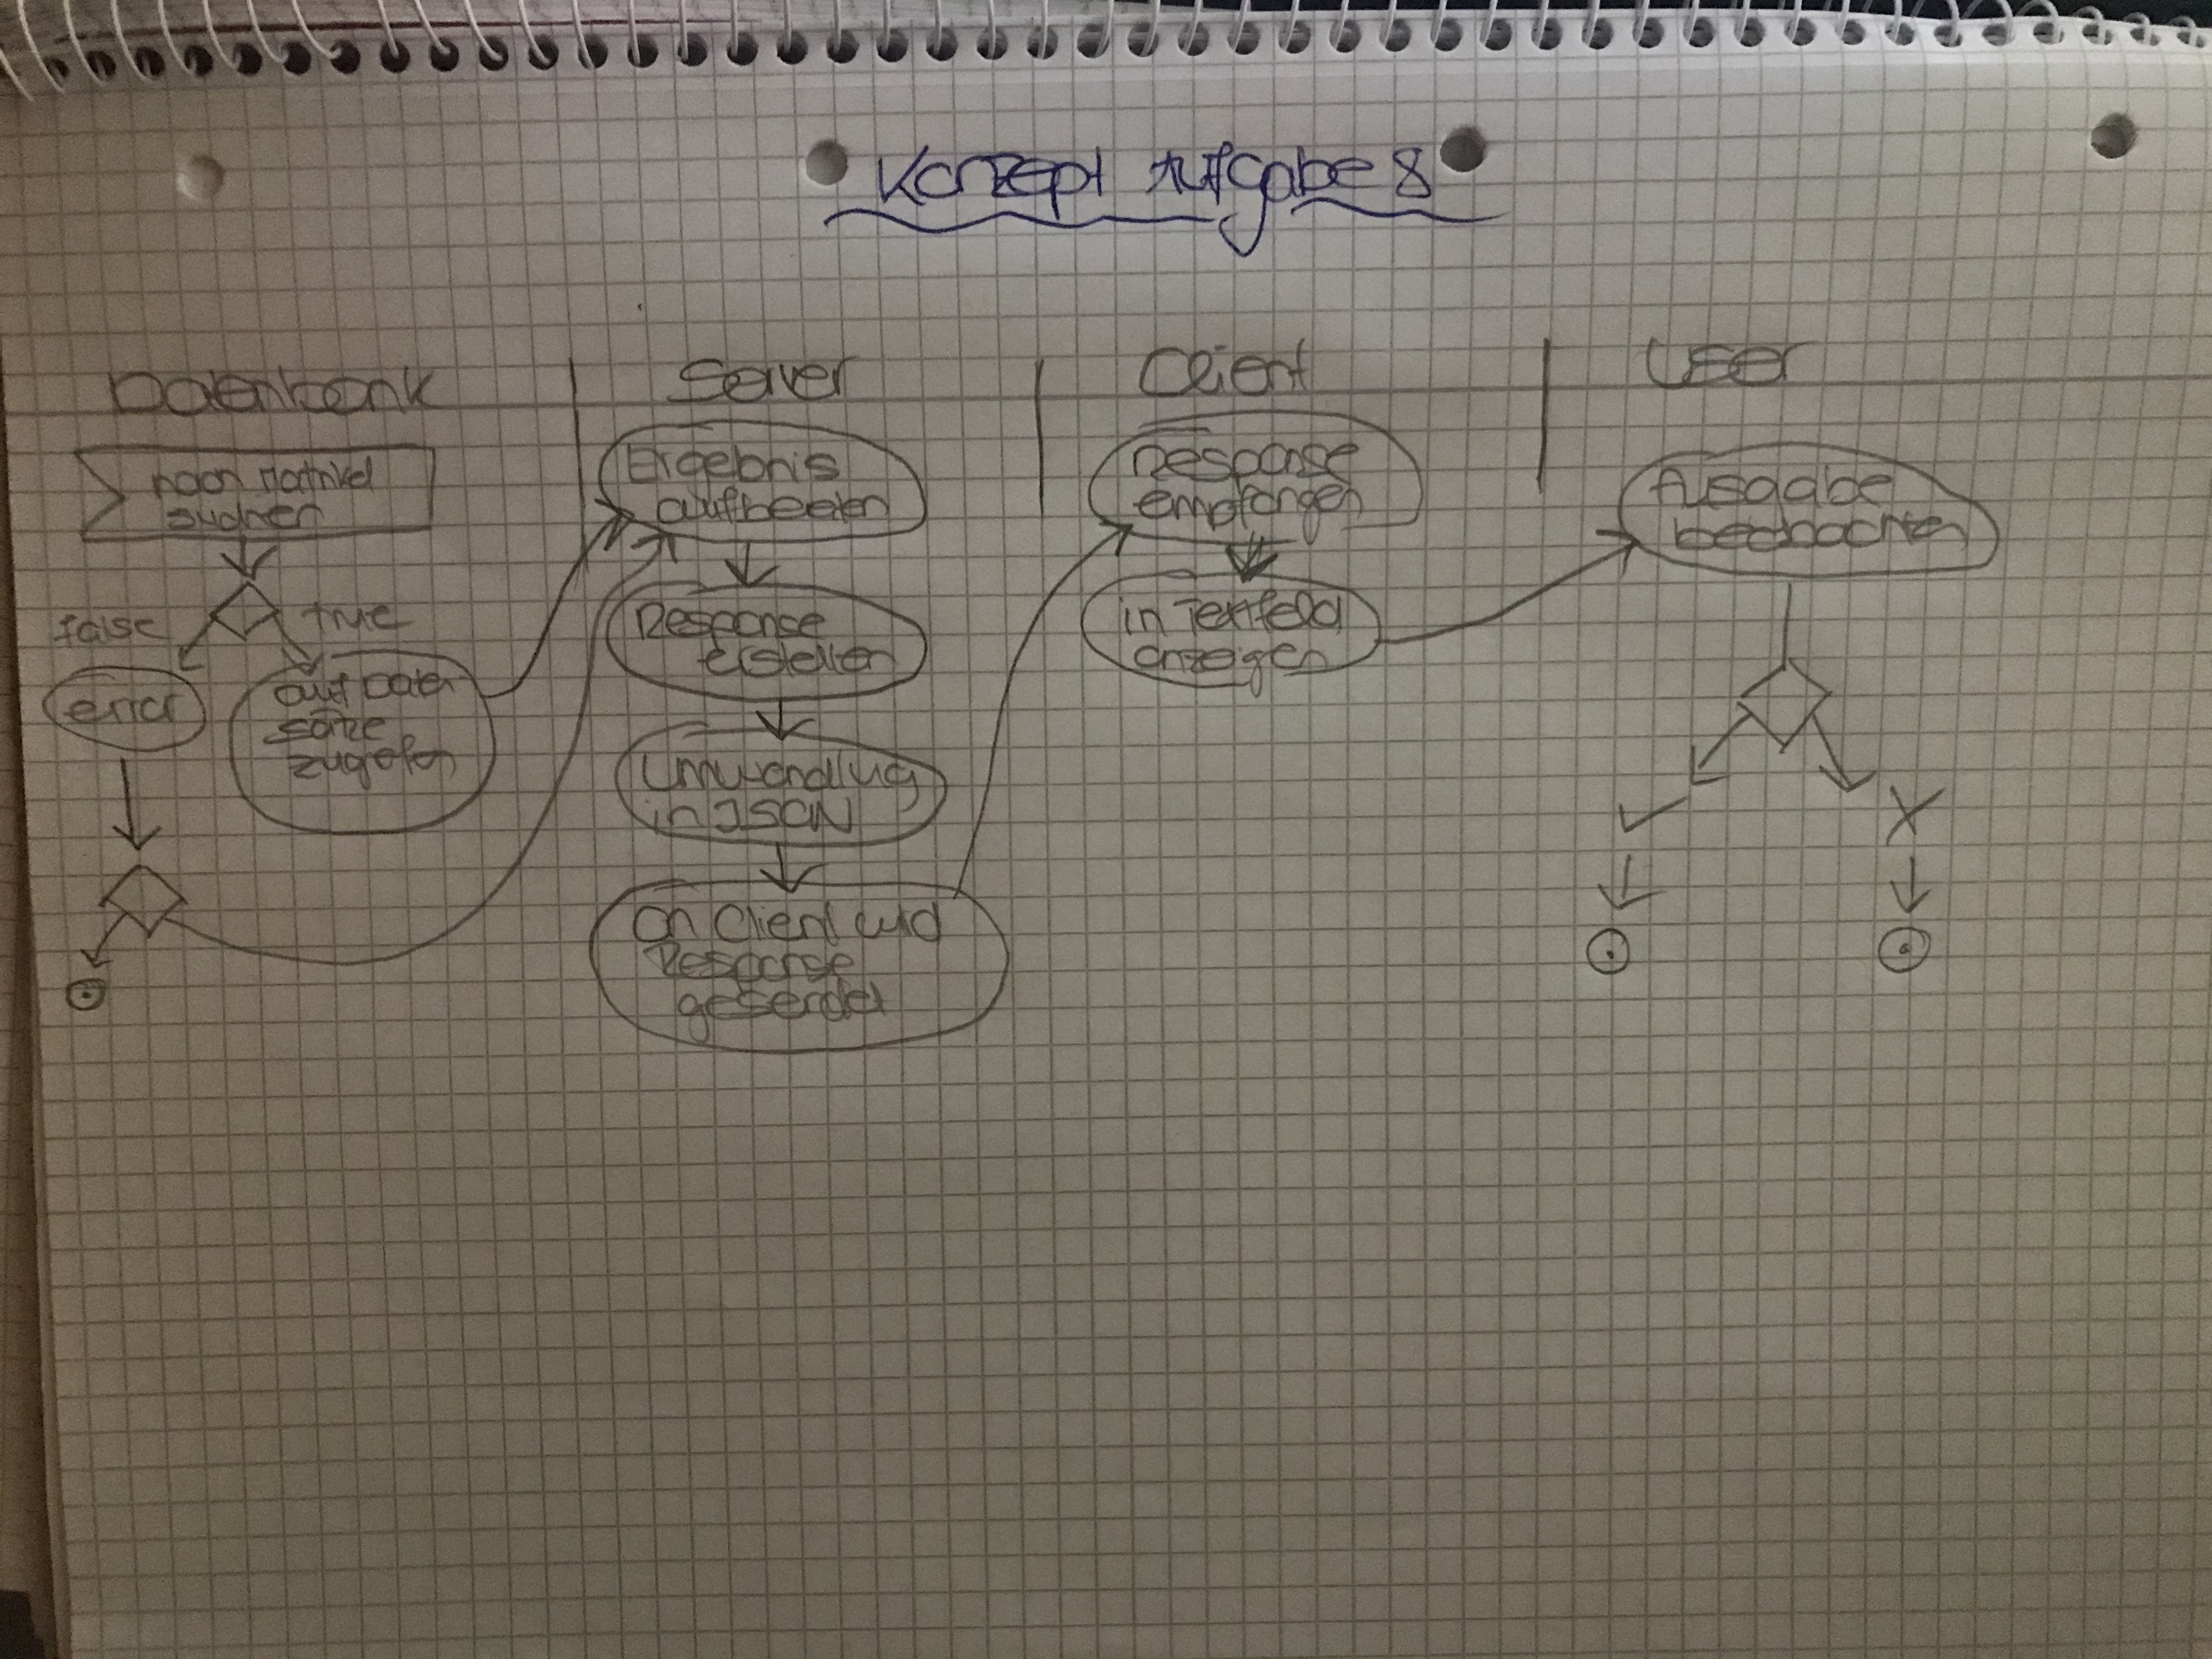 Konzept Aufgabe 8
Datenbank
Server
Client
User
nach Matrikel
suchen
false
true
error
auf Daten
sätze
zugreifen
Ergebnis
aufbereiten
Response
erstellen
Umwandlug
in JSON
an Client wird
Response
gesendet
Response
empfangen
in Textfeld
anzeigen
Ausgabe
beobachten